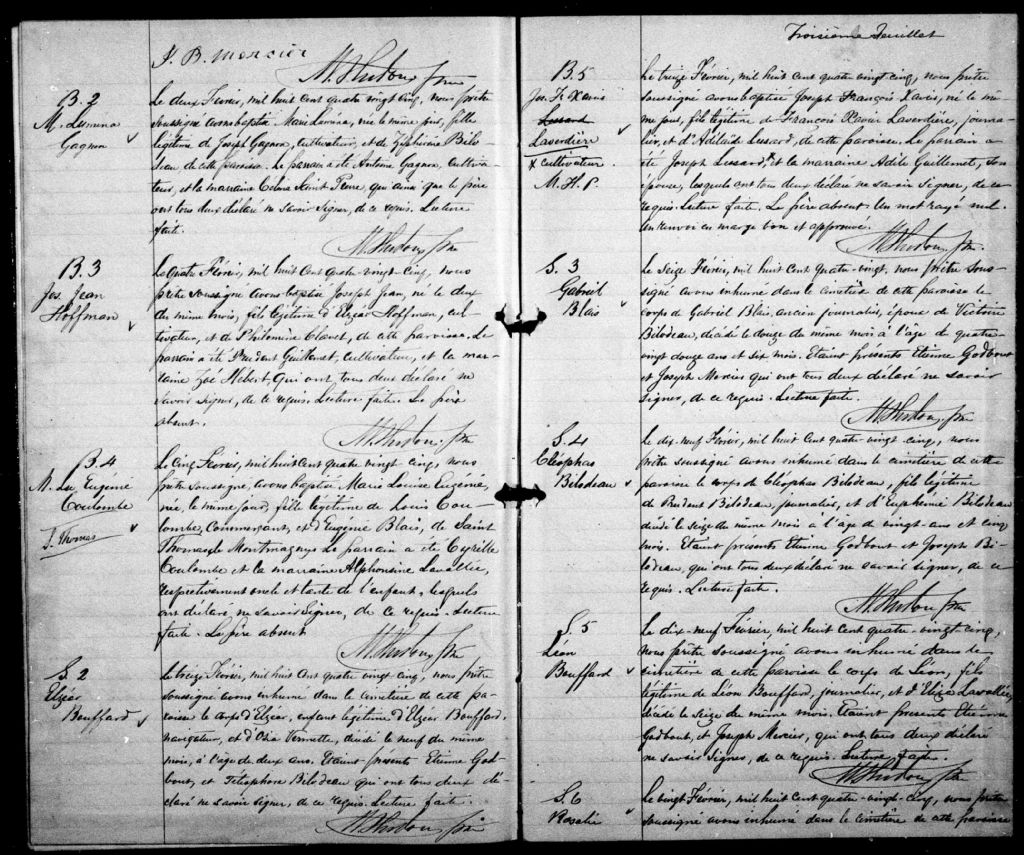 J. B. Mercier
B. 2
M. Lumina
Gagnon
Le deux Fevrier, mil huit cent quatre vingt cinq, nous prêtre
soussigné avons baptisé Marie Lumina, née le même jour, fille
légitime de Joseph Gagnon, cultivateur, et de Zéphirine Bilo-
deau de cette paroisse. Le parrain a été Antoine Gagnon, cultiva-
teur, et la marraine Céline Saint Pierre, qui ainsi que le père
ont tous deux déclaré ne savoir signer, de ce requis. Lecture
faite.
B. 3
Jos. Jean
Hoffman
Le quatre Février, mil huit cent quatre-vingt-cinq, nous
prêtre soussigné avons baptisé Joseph Jean, né le deux
du même mois, fils légitime d'Elzéar Hoffman, cul-
tivateur, et de Philomène Clavet, de cette paroisse. Le
parrain a été Prudent Guillemet, cultivateur, et la mar-
raine Zoé Hébert, qui ont tous deux déclaré ne
savoir signer, de ce requis. Lecture faite. Le père
absent.
B. 4
M. Lse Eugénie
Coulombe
S. Thomas
Le cinq Février, mil huit cent quatre vingt cinq, nous
prêtre soussigné, avons baptisé Marie Louise Eugénie,
née, le même jour, fille légitime de Louis Cou-
lombe, Commerçant, et d'Eugénie Blais, de Saint
Thomas de Montmagny. Le parrain a été Cyrille
Coulombe et la marraine Alphonsine Lavallée,
respectivement oncle et tante de l'enfant, lesquels
ont déclaré ne savoir signer, de ce requis. Lecture
faite. Le père absent
S. 2
Elzéar
Bouffard
Le treize Février, mil huit cent quatre vingt cinq, nous prêtre
soussigné avons inhumé dans le cimetière de cette pa-
roisse le corps d'Elzéar, enfant légitime d'Elzéar Bouffard,
navigateur, et d'Oda Vermette, décédé le neuf du même
mois, à l'âge de deux ans. Etaient présents Etienne God-
bout, et Télesphore Bilodeau qui ont tous deux dé-
claré ne savoir signer, de ce requis. Lecture faite.
Troisième Feuillet
B. 5
Jos. Fr. Xavier
Lessard
Laverdière
X cultivateur
M. H. P.
Le treize Février, mil huit cent quatre vingt-cinq, nous prêtre
soussigné avons baptisé Joseph François Xavier, né le mê-
me jour, fils légitime de François Xavier Laverdière, journa-
lier, et d'Adélaïde Lessard, de cette paroisse. Le parrain a
été Joseph Lessard, X et la marraine Adèle Guillemet, son
épouse, lesquels ont tous deux déclaré ne savoir signer, de ce
requis. Lecture faite. Le père absent. Un mot rayé nul.
Un renvoi en marge bon et approuvé.
S. 3
Gabriel
Blais
Le seize Février, mil huit cent quatre-vingt, nous prêtre sous-
signé avons inhumé dans le cimetière de cette paroisse le
corps de Gabriel Blais, ancien journalier, époux de Victoire
Bilodeau, décédé le douze du même mois à l'âge de quatre-
vingt douze ans et six mois. Etaient présents Etienne Godbout
et Joseph Mercier qui ont tous deux déclaré ne savoir
signer, de ce requis. Lecture faite.
S. 4
Cléophas
Bilodeau
Le dix-neuf Février, mil huit cent quatre-vingt cinq, nous
prêtre soussigné avons inhumé dans le cimetière de cette
paroisse le corps de Cléophas Bilodeau, fils légitime
de Prudent Bilodeau, journalier, et d'Euphémie Bilodeau
décédé le seize du même mois à l'âge de vingt ans et cinq
mois. Etaient présents Etienne Godbout et Joseph Bi-
lodeau, qui ont tous deux déclaré ne savoir signer, de ce
requis. Lecture faite.
S. 5
Léon
Bouffard
Le dix-neuf Février, mil huit cent quatre-vingt-cinq,
nous prêtre soussigné avons inhumé dans le
cimetière de cette paroisse le corps de Léon, fils
légitime de Léon Bouffard, journalier, et d'Eliza Lavallée,
décédé le seize du même mois. Etaient présents Etienne
Godbout, et Joseph Mercier, qui ont tous deux déclaré
ne savoir signer, de ce requis. Lecture faite.
S. 6
Rosalie
Le vingt Février, mil huit cent quatre-vingt-cinq, nous prêtre
soussigné avons inhumé dans le cimetière de cette paroisse